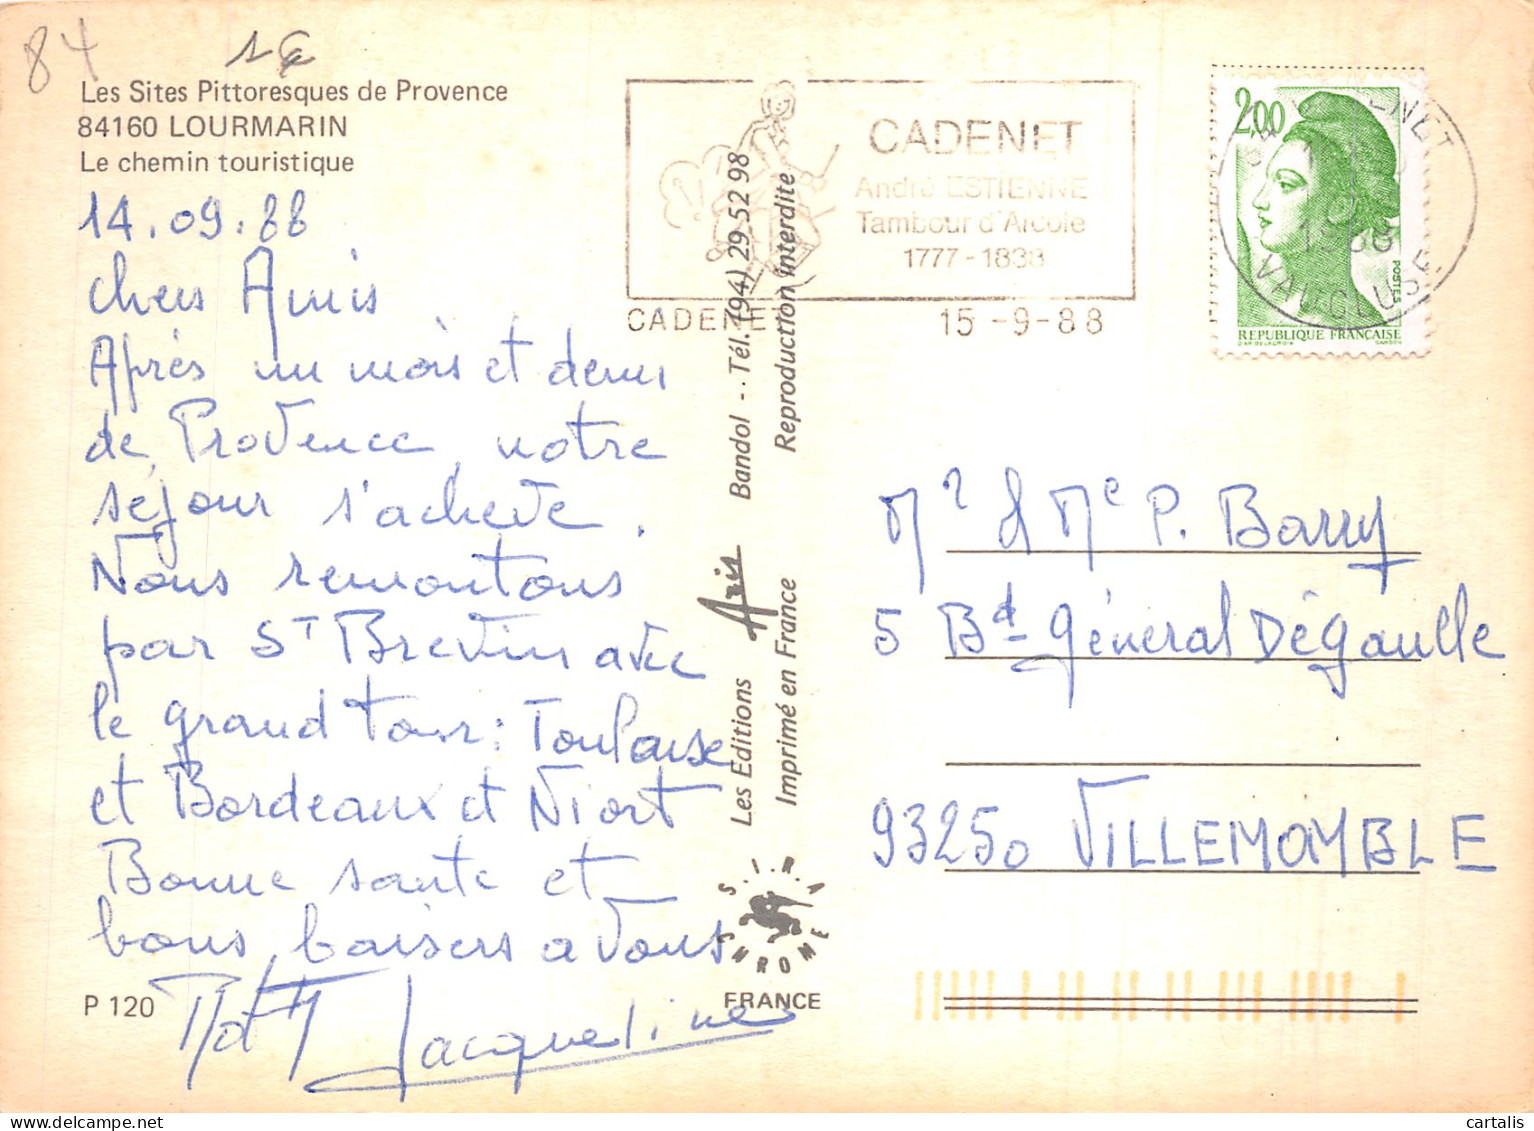 84
1€
Les Sites Pittoresques de Provence
84160 LOURMARIN
Le chemin touristique
14.09.88
chers Amis
Après un mois et demi
de Provence, notre
séjour s'achève.
Nous remontons
par ST Brevin avec
le grand tour : Toulouse
et Bordeaux et Niort
Bonne santé et
bons baisers à vous
Jacqueline
P 120
Les Editions Aris Bandol - Tél. (94) 29 52 98
Imprimé en France Reproduction interdite
S.I.R.A
CHROME
FRANCE
CADENET
André ESTIENNE
Tambour d'Arcole
1777-1838
CADENET 15-9-88
2,00
POSTES
REPUBLIQUE FRANÇAISE
CADENET
1988
VAUCLUSE
Mr & Me P. Barry
5 Bd Général DéGaulle
93250 VILLEMOMBLE
cartalis